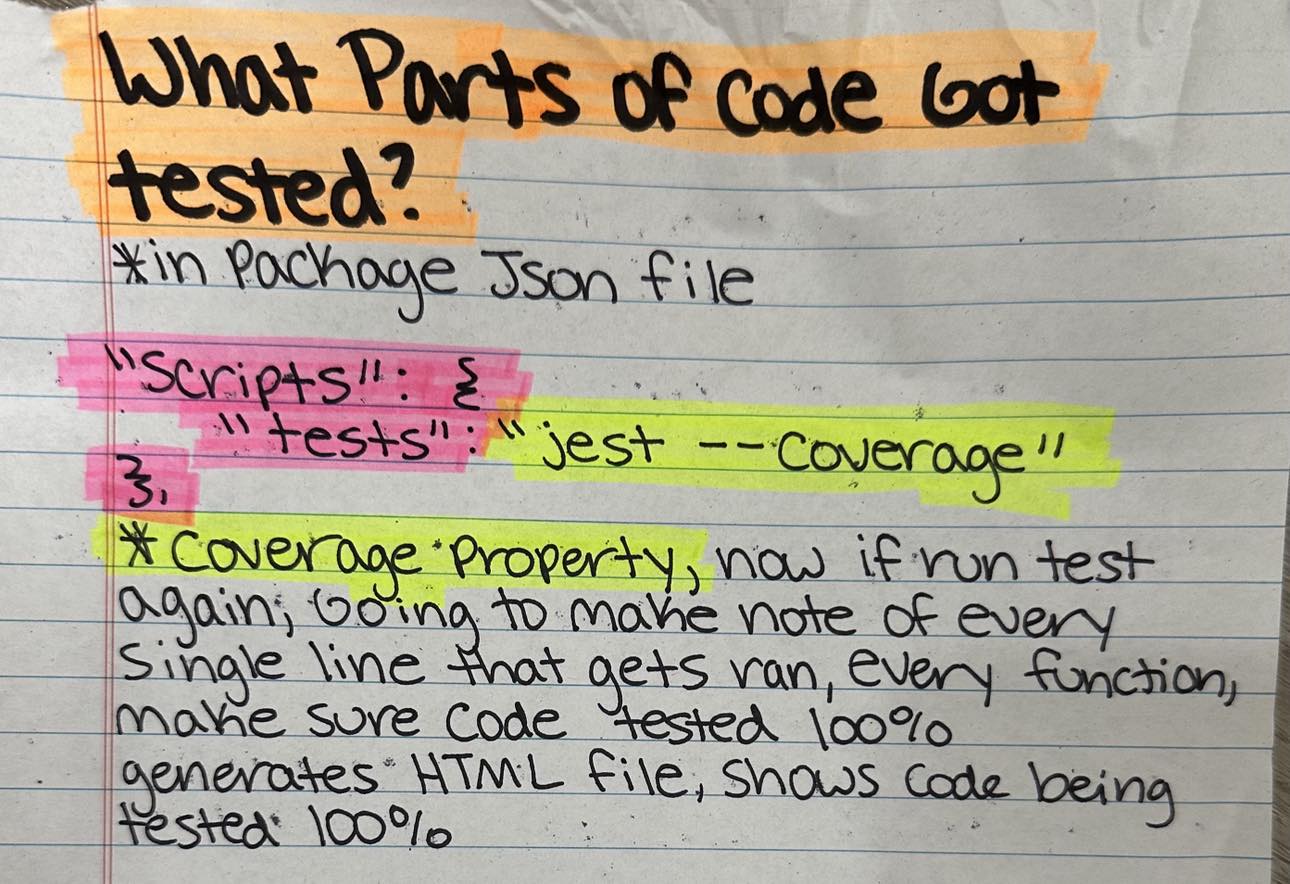 What Parts of Code Got
tested?
*in Package Json file
"Scripts": {
"tests": "jest --coverage"
},
* Coverage Property, now if run test
again, Going to make note of every
Single line that gets ran, every function,
make sure code tested 100%
generates HTML file, shows code being
tested 100%